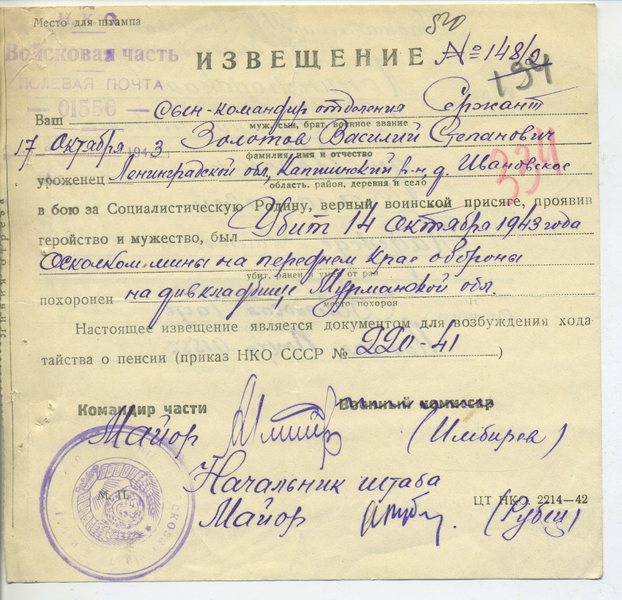 Место для штампа
НКО
520
Войсковая часть
ПОЛЕВАЯ ПОЧТА
— 01556 —
ИЗВЕЩЕНИЕ № 148/0
194
334
Ваш сын-командир отделения Сержант
муж, сын, брат, военное звание
17 Октября 1943 Золотов Василий Степанович
фамилия, имя и отчество
уроженец Ленинградской обл, Капшинский р-н, д. Ивановское
область, район, деревня и село
в бою за Социалистическую Родину, верный воинской присяге, проявив
геройство и мужество, был Убит 14 октября 1943 года
Осколком мины на переднем крае обороны
убит, ранен и умер от ран
похоронен на дивкладбище Мурманской обл.
место похорон
Настоящее извещение является документом для возбуждения хода-
тайства о пенсии (приказ НКО СССР № 220-41)
Командир части Военный комиссар
Майор (Имбирев)
Начальник штаба
М. П. ЦТ НКО. 2214—42
Майор (Рубец)